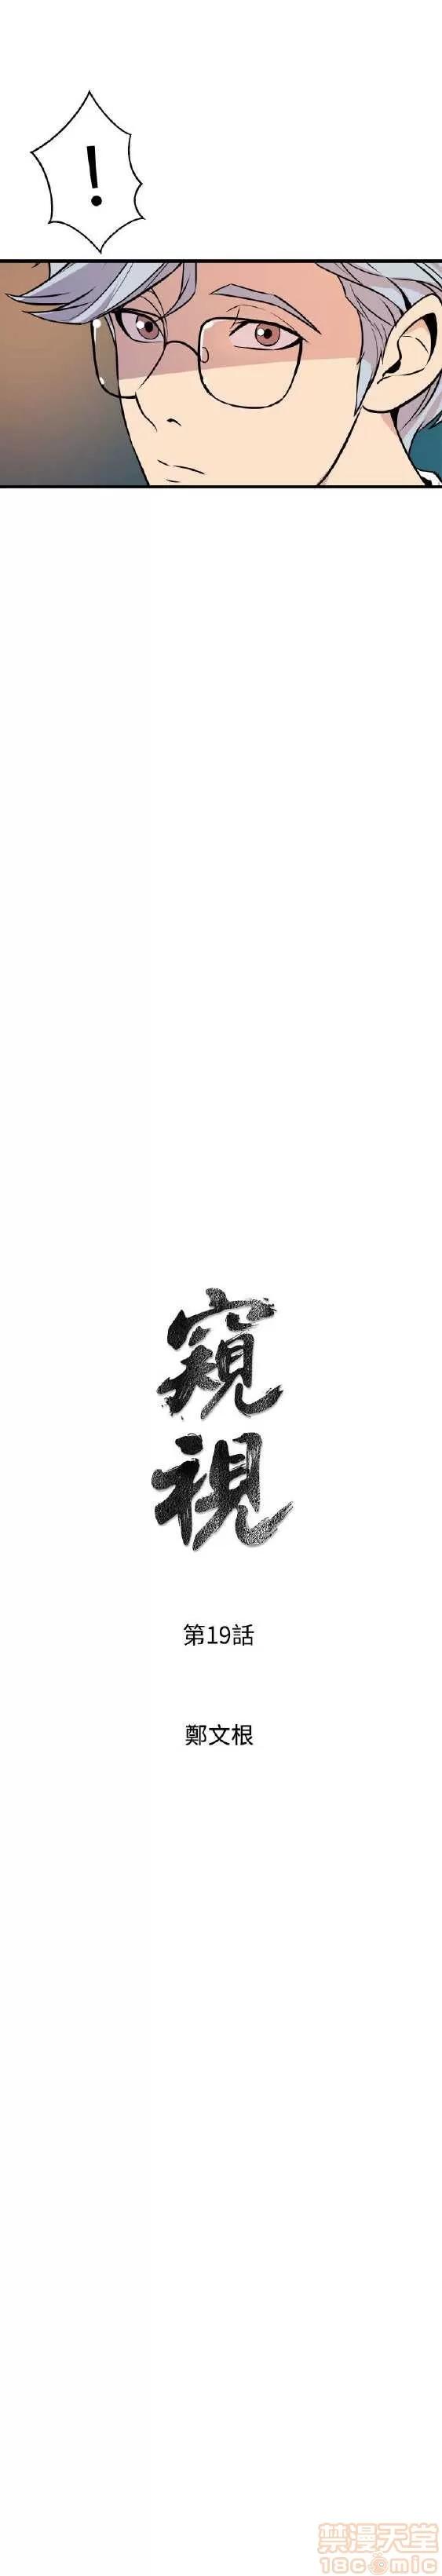 !
窺
視
第19話
鄭文根
禁漫天堂
18comic